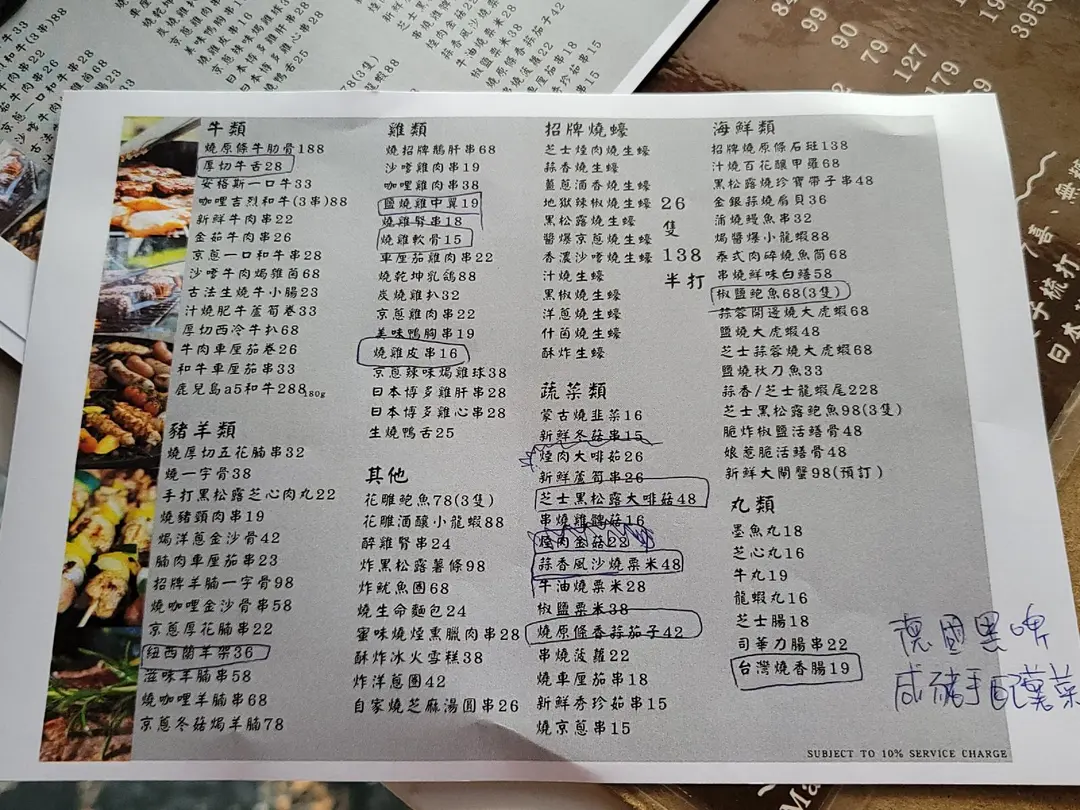 牛類
燒原條牛肋骨188
厚切牛舌28
安格斯一口牛33
咖哩吉烈和牛(3串)88
新鮮牛肉串22
金茹牛肉串26
京蔥一口和牛串28
沙嗲牛肉焗雞茵68
古法生燒牛小腸23
汁燒肥牛蘆筍卷33
厚切西冷牛扒68
牛肉車厘茄卷26
和牛車厘茄串33
鹿兒島a5和牛288 180g
豬羊類
燒厚切五花腩串32
燒一字骨38
手打黑松露芝心肉丸22
燒豬頸肉串19
焗洋蔥金沙骨42
腩肉車厘茄串23
招牌羊腩一字骨98
燒咖哩金沙骨串58
京蔥厚花腩串22
紐西蘭羊架36
滋味羊腩串58
燒咖哩羊腩串68
京蔥冬菇焗羊腩78
雞類
燒招牌鵝肝串68
沙嗲雞肉串19
咖哩雞肉串38
鹽燒雞中翼19
燒雞腎串18
燒雞軟骨15
車厘茄雞肉串22
燒乾坤乳鴿88
炭燒雞扒32
京蔥雞肉串22
美味鴨胸串19
燒雞皮串16
京蔥辣味焗雞球38
日本博多雞肝串28
日本博多雞心串28
生燒鴨舌25
其他
花雕鮑魚78(3隻)
花雕酒釀小龍蝦88
醉雞腎串24
炸黑松露薯條98
炸魷魚圈68
燒生命麵包24
蜜味燒煙熏臘肉串28
酥炸冰火雪糕38
炸洋蔥圈42
自家燒芝麻湯圓串26
招牌燒蠔
芝士煙肉燒生蠔
蒜香燒生蠔
薑蔥酒香燒生蠔
地獄辣椒燒生蠔
黑松露燒生蠔
醬爆京蔥燒生蠔
香濃沙嗲燒生蠔
汁燒生蠔
黑椒燒生蠔
洋蔥燒生蠔
什茵燒生蠔
酥炸生蠔
26
隻
138
半打
蔬菜類
蒙古燒韭菜16
新鮮冬菇串15
煙肉大啡菇26
新鮮蘆筍串26
芝士黑松露大啡菇48
串燒雞髀菇16
煙肉金菇22
蒜香風沙燒粟米48
牛油燒粟米28
椒鹽粟米38
燒原條香蒜茄子42
串燒菠蘿22
燒車厘茄串18
新鮮秀珍菇串15
燒京蔥串15
海鮮類
招牌燒原條石斑138
汁燒百花釀甲羅68
黑松露燒珍寶帶子串48
金銀蒜燒扇貝36
蒲燒鰻魚串32
焗醬爆小龍蝦88
泰式肉碎燒魚筒68
串燒鮮味白鱔58
椒鹽鮑魚68(3隻)
蒜蓉開邊燒大虎蝦68
鹽燒大虎蝦48
芝士蒜蓉燒大虎蝦68
鹽燒秋刀魚33
蒜香/芝士龍蝦尾228
芝士黑松露鮑魚98(3隻)
脆炸椒鹽活鱔骨48
娘惹脆活鱔骨48
新鮮大閘蟹98(預訂)
丸類
墨魚丸18
芝心丸16
牛丸19
龍蝦丸16
芝士腸18
司華力腸串22
台灣燒香腸19
德國黑啤
咸豬手配
SUBJECT TO 10% SERVICE CHARGE